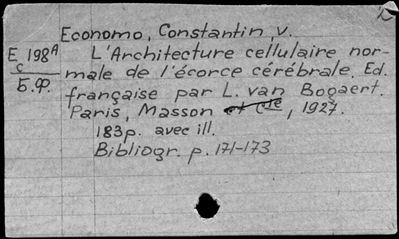 Economo, Constantin, v.
E 198A
c
Б.Ф.
L'Architecture cellulaire nor-
male de l'écorce cérébrale. Ed.
française par L. van Bogaert.
Paris, Masson et Cie, 1927.
183p. avec ill.
Bibliogr. p. 171-173